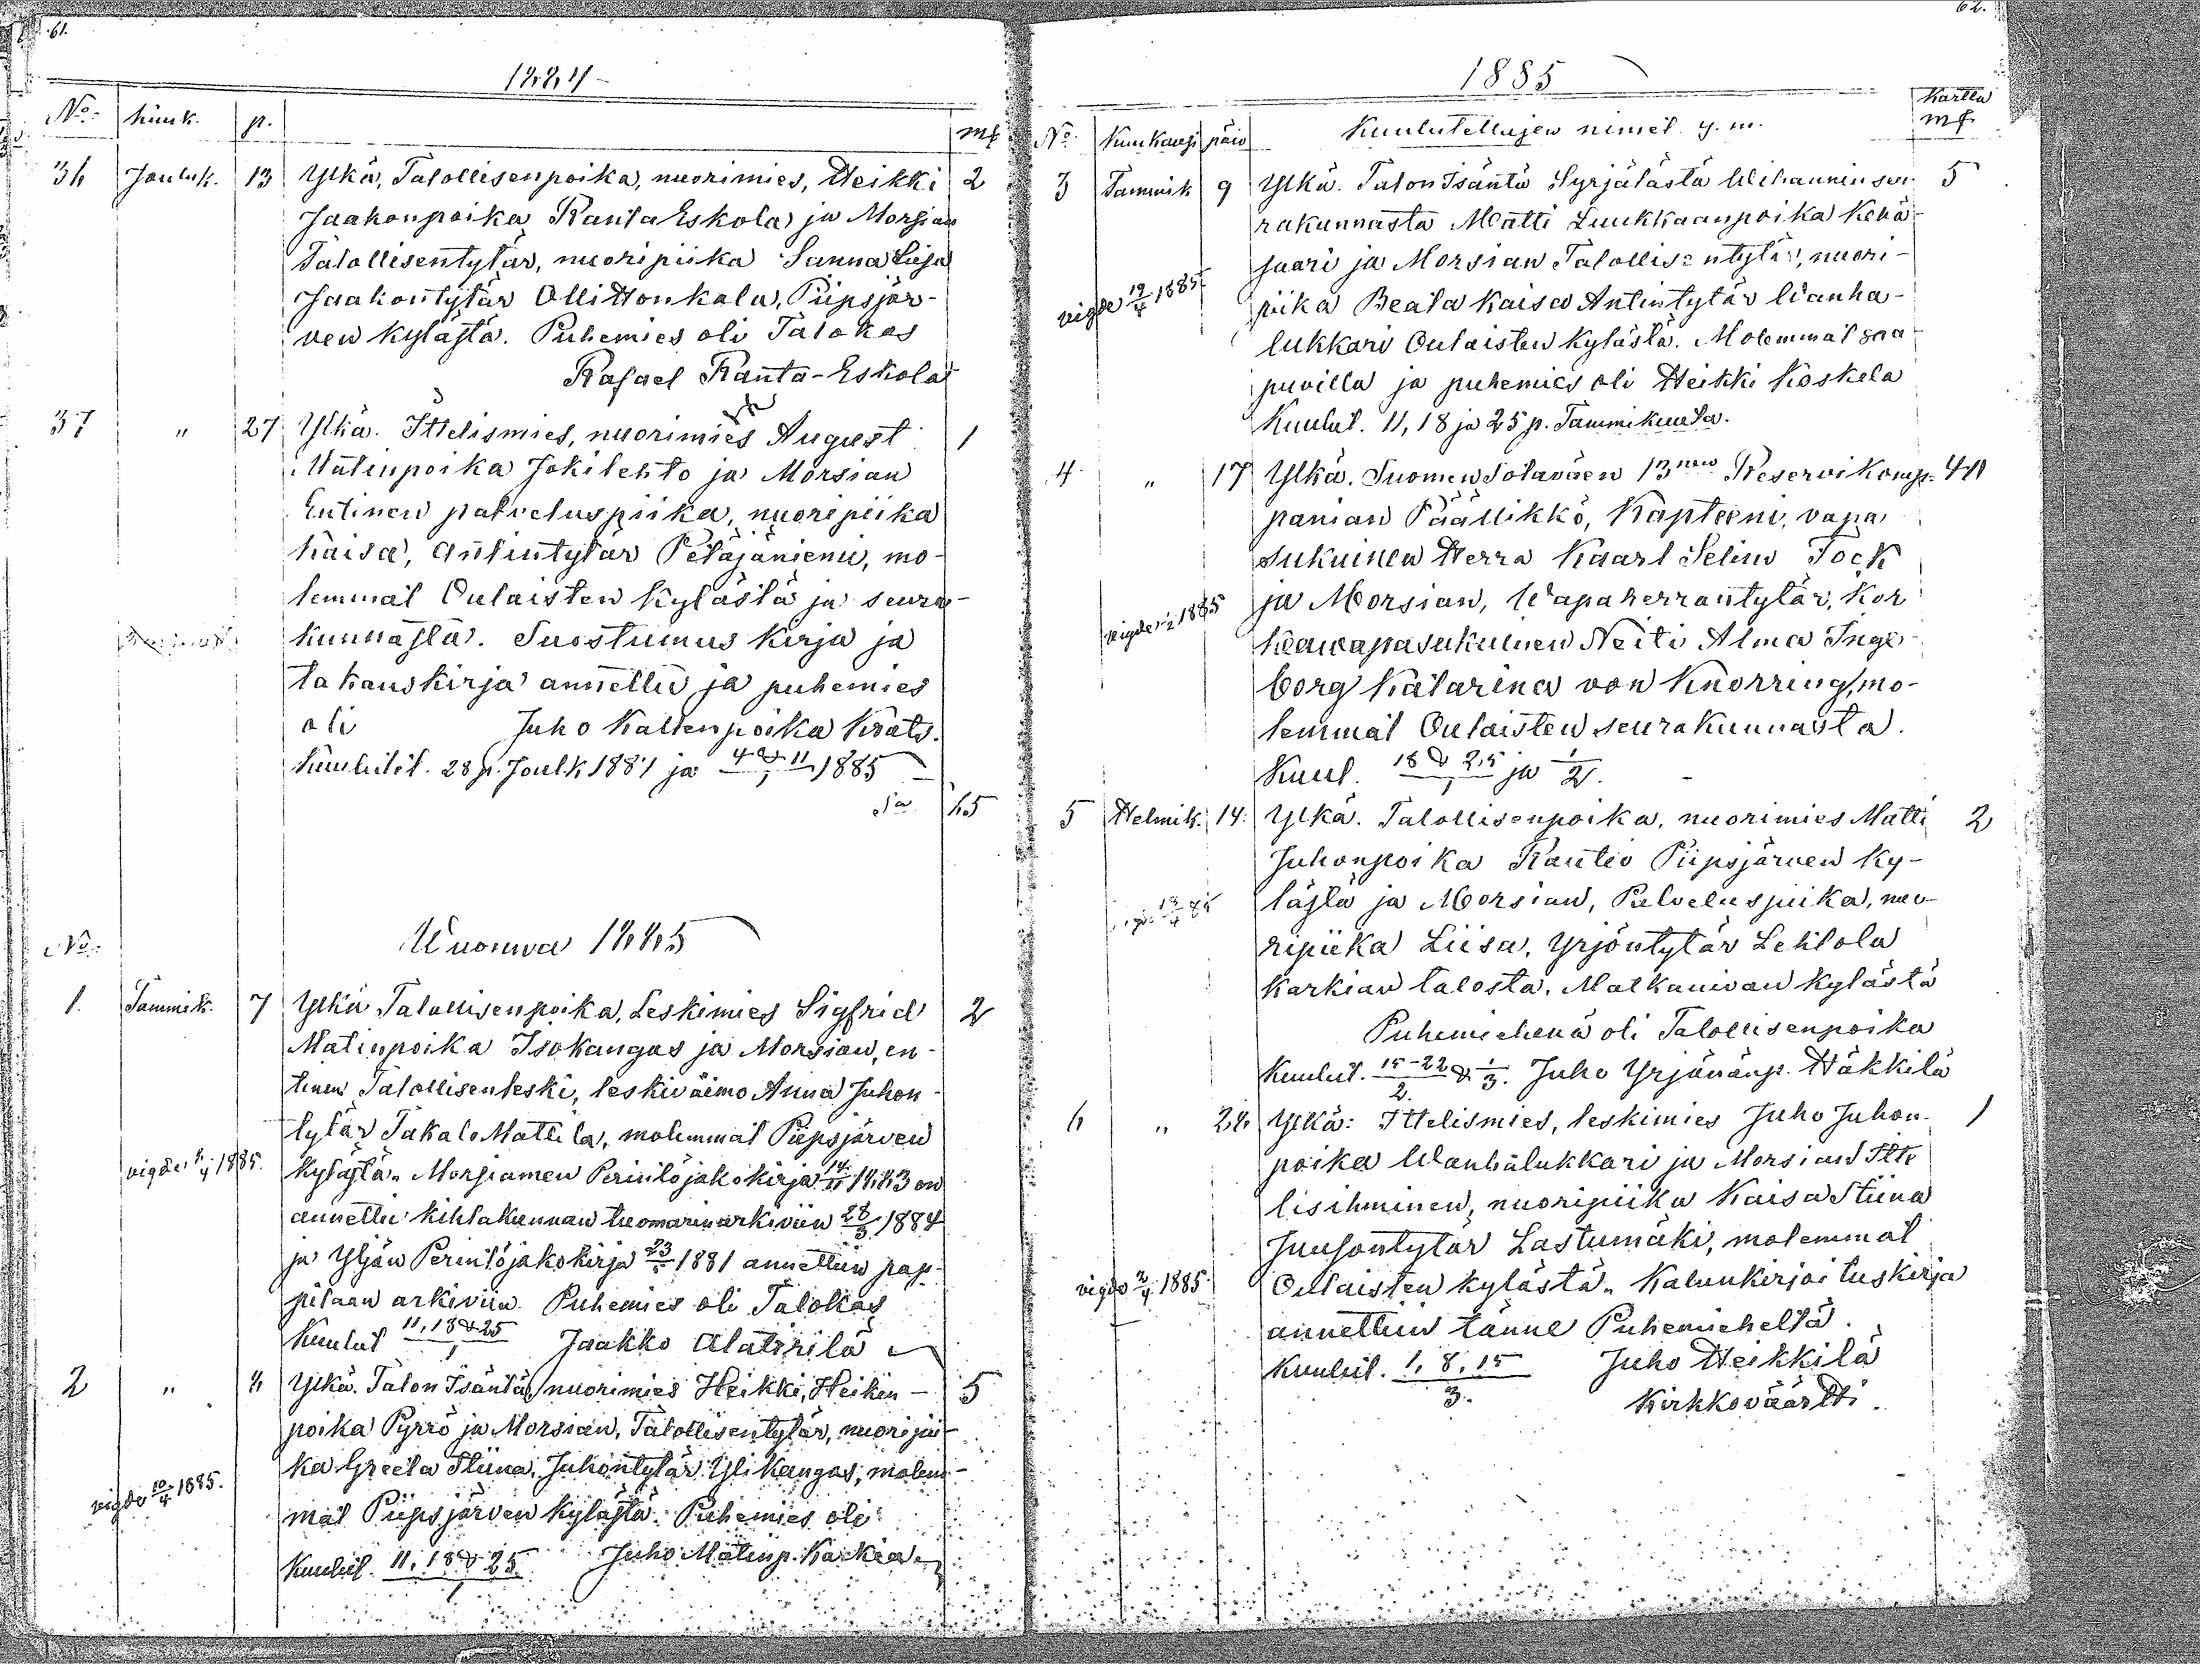 61.
1884
No. kuuk. p. mf
36 Jouluk. 13 Ylkä, Talollisenpoika, nuorimies, Heikki 2
Jaakonpoika Ranta Eskola ja Morsian
Talollisentytär, nuoripiika Sanna Liisa
Jaakontytär Olli Honkala, Piipsjär-
ven kylästä. Puhemies oli Talokas
Rafael Ranta-Eskola
37 " 27 Ylkä. Ittelismies, nuorimies August 1
Matinpoika Jokilehto ja Morsian
Entinen palveluspiika, nuoripiika
Kaisa, Antintytär Petäjäniemi, mo-
lemmat Oulaisten kylästä ja seura-
kunnasta. Suostumus kirja ja
takauskirja annettu ja puhemies
oli Juho Kallenpoika Krats.
Kuulutet. 28 p. Joulk 1884 ja 4 & 11/1 1885
Sa 65
No. Wuonna 1885
1. Tammik. 7 Ylkä Talollisenpoika, Leskimies Sigfrid 2
Matinpoika Isokangas ja Morsian, en-
tinen Talollisenleski, leskivaimo Anna Juhon-
tytär Takalo Mattila, molemmat Piipsjärven
vigde 6/4 1885. kylästä. Morsiamen Perintöjakokirja 14/11 1883 on
annettu kihlakunnan tuomarin arkiviin 28/3 1884
ja Yljän Perintöjakokirja 23/ 1881 annettiin pap-
pilaan arkiviin. Puhemies oli Talokas
Kuulut 11, 18 & 25/1 Jaakko Alatirilä
2 " 8 Ylkä. Talon Isäntä, nuorimies Heikki, Heikin- 5
poika Pyrrö ja Morsian, Talollisentytär, nuoripii-
ka Greeta Stiina, Juhontytär Ylikangas, molem-
vigde 10/4 1885. mat Piipsjärven kylästä. Puhemies oli
Kuulut. 11, 18 & 25/1 Juho Matinp. Karkia
62.
1885
No. Kuukausi päiv Kuulutettujen nimet y. m. Kartta mf.
3 Tammik 9 Ylkä. Talon Isäntä Syrjälästä Wihannin seu- 5
rakunnasta Matti Luukkaanpoika Kesä-
saari ja Morsian Talollisentytär, nuori-
vigde 12/4 1885 piika Beata Kaisa Antintytär Wanha-
lukkari Oulaisten kylästä. Molemmat saa-
puvilla ja puhemies oli Heikki Koskela
Kuulut. 11, 18 ja 25 p. Tammikuuta.
4 " 17 Ylkä. Suomen Sotaväen 13nen Reservikomp- 40
panian Päällikkö, Kapteeni, vapa
sukuinen Herra Kaarl Selim Tock
vigde 1885 ja Morsian, Wapaherrantytär, Kor
keavapasukuinen Neiti Alma Inge-
borg Katarina von Knorring, mo-
lemmat Oulaisten seurakunnasta.
Kuul. 18 & 25/1 ja 1/2.
5 Helmik. 14. Ylkä. Talollisenpoika, nuorimies Matti 2
Juhonpoika Rautio Piipsjärven ky-
lästä ja Morsian, Palveluspiika, nuo-
ripiika Liisa, Yrjöntytär Lehtola
Karkian talosta, Matkanivan kylästä
Puhemiehenä oli Talollisenpoika
Kuulut. 15-22/2 & 1/3. Juho Yrjänänp. Häkkilä
6 " 28 Ylkä: Ittelismies, leskimies Juho Juhon- 1
poika Wanhalukkari ja Morsian Itte
lisihminen, nuoripiika Kaisa Stiina
Juusontytär Lastumäki, molemmat
vigde 2/4 1885. Oulaisten kylästä. Kalunkirjoituskirja
annettiin tänne Puhemieheltä.
Kuulut. 1, 8, 15/3. Juho Heikkilä
Kirkkoväärtti.